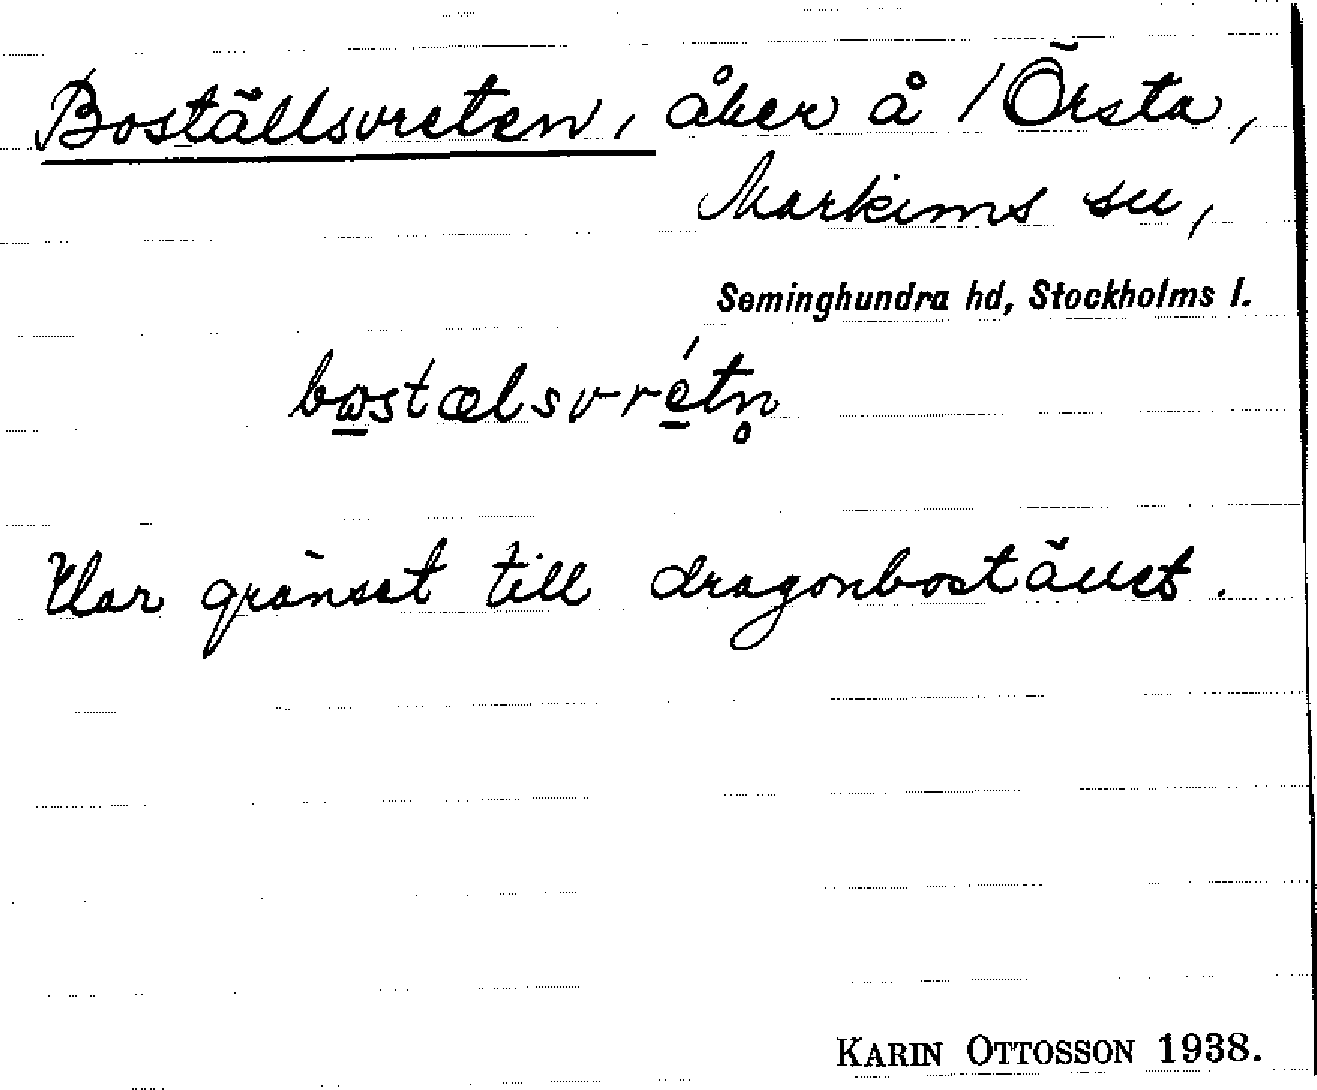 Boställsvreten, åker å / Örsta,
Markims sn,
Seminghundra hd, Stockholms l.
bωstælsvrétn̥
Har gränsat till dragonbostället.
KARIN OTTOSSON 1938.